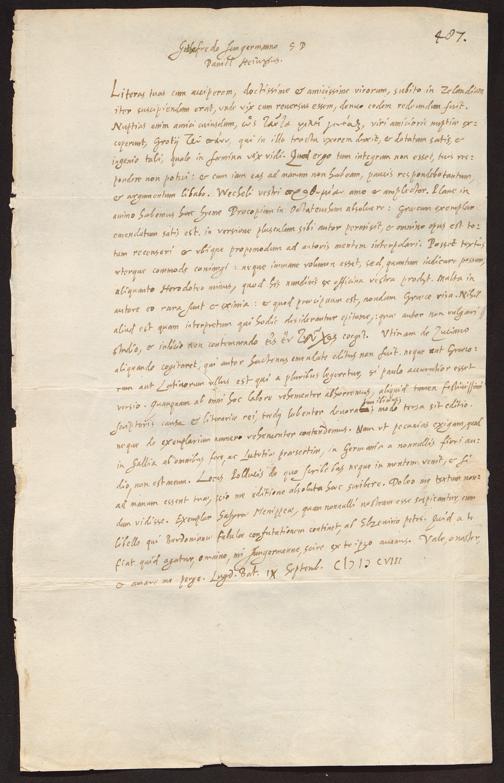 487.
Gothofredo Jungermanno S D
Daniel Heinsius.
Literas tuas cum acciperem, doctissime & amicissime virorum, subito in Zelandiam
iter suscipiendum erat, unde vix cum reversus essem, denuo eodem redeundum fuit.
Nuptias enim amici cuiusdam, viri amicioris nuptiæ ex-
ceperunt, Grotij qui in illo tractu uxorem duxit, & dotatam satis, &
ingenio tali, quale in fœmina vix vidi. Quod ergo tum integrum non esset, tuis res-
pondere non potui: & cum iam eas ad manum non habeam, paucis respondebo tantum,
& argumentum libabo. Wecheli vestri amo & amplector. Is an in
animo habemus hac hyeme Procopium in Octateuchum absolvere: Græcum exemplum
emendatum satis est, in versione plusculum sibi autor permisit, & omnino opus est to-
tam recenseri & ubique propemodum ad autoris mentem interpolari. Posset textus
uterque commode coniungi: neque immane volumen esset, sed quantum iudicare possum,
aliquanto Herodoto minus, quod his nundinis ex officina vestra prodijt. Multa in
autore eo rara sunt & eximia: & quod præcipuum est, nondum Græce visa. Nihil
aliud est quam interpretum qui hodie desiderantur epitome, quas autor non vulgari
studio, & iudicio non contemnendo coegit. Utinam de Zuzimo
aliquando cogitaret, qui autor hactenus emendate editus non fuit. neque aut Græco-
rum aut Latinorum ullus est qui a pluribus legeretur, si paulo accuratior esset
versio. Quanquam ab omni hoc labore vehementer abhorremus, aliquid tamen festivissimi
scriptoris causa & literariæ rei, tædij lubenter devorabimus modo tersa sit editio.
neque de exemplarium numero vehementer contendemus. Nam ut pecunias exigam, quod
in Gallia ab omnibus fere, ac Lutetiæ præsertim, in Germania a nonnullis fieri au-
dio, non est meum. Locus Pollucis de quo scribebas neque in mentem venit, & si
ad manum essent tua, scio me editione absoluta hæc scribere. Doleo me textum non-
dum vidisse. Exemplar Satyræ Menippeæ, quam nonnulli nostram esse suspicantur, cum
libello qui Burdonum fabulæ confutationem continet, ab Elzevirio petes. Quid a te
fiat, quid agatur, omnino, mi Jungermanne, scire ex te ipso avemus. Vale, o noster,
& amare me perge. Lugd. Bat. IX Septemb. CIƆ IƆ CVIII